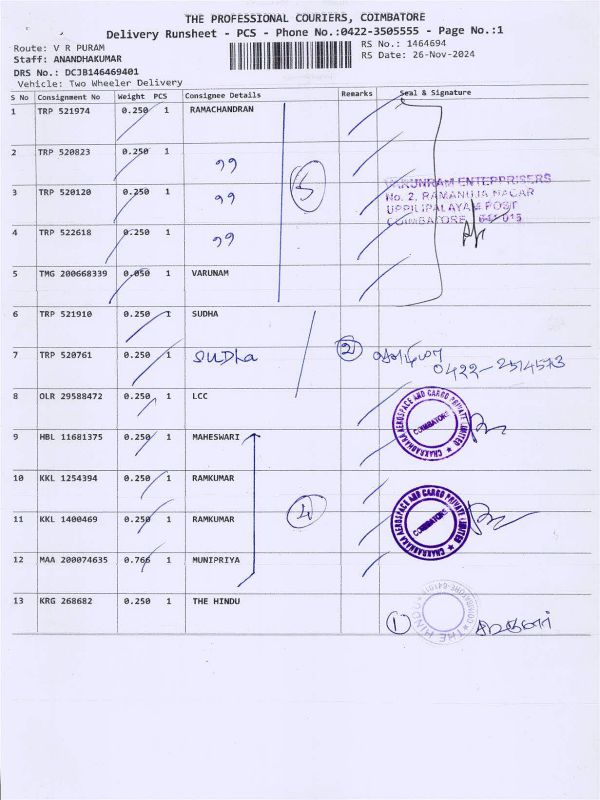 THE PROFESSIONAL COURIERS, COIMBATORE
Delivery Runsheet - PCS - Phone No.:0422-3505555 - Page No.:1
Route: V R PURAM
RS No.: 1464694
Staff: ANANDHAKUMAR
RS Date: 26-Nov-2024
DRS No.: DCJB146469401
Vehicle: Two Wheeler Delivery
S No Consignment No Weight PCS Consignee Details Remarks Seal & Signature
1 TRP 521974 0.250 1 RAMACHANDRAN
2 TRP 520823 0.250 1 ,,
3 TRP 520120 0.250 1 ,,
4 TRP 522618 0.250 1 ,,
5
VARUNRAM ENTERPRISERS
No. 2, RAMANUJA NAGAR
UPPILIPALAYAM POST
COIMBATORE - 641 015
5 TMG 200668339 0.050 1 VARUNAM
6 TRP 521910 0.250 1 SUDHA
7 TRP 520761 0.250 1 SUDha
2
0422-2574573
8 OLR 29588472 0.250 1 LCC
CHAKRADHARA AEROSPACE AND CARGO PRIVATE LIMITED
COIMBATORE
9 HBL 11681375 0.250 1 MAHESWARI
10 KKL 1254394 0.250 1 RAMKUMAR
11 KKL 1400469 0.250 1 RAMKUMAR
4
CHAKRADHARA AEROSPACE AND CARGO PRIVATE LIMITED
COIMBATORE
12 MAA 200074635 0.766 1 MUNIPRIYA
13 KRG 268682 0.250 1 THE HINDU
1
THE HINDU